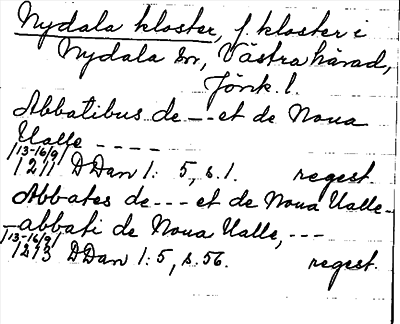 Nydala kloster, f. kloster i
Nydala sn, Västra härad,
Jönk. l.
Abbatibus de --- et de Noua
Ualle ----
/13-16/9/
1211 DDan 1: 5, s. 1. regest.
Abbates de --- et de Noua Ualle -
- abbati de Noua Ualle, ---
/13-16/9/
1213 DDan 1:5, s. 56. regest.